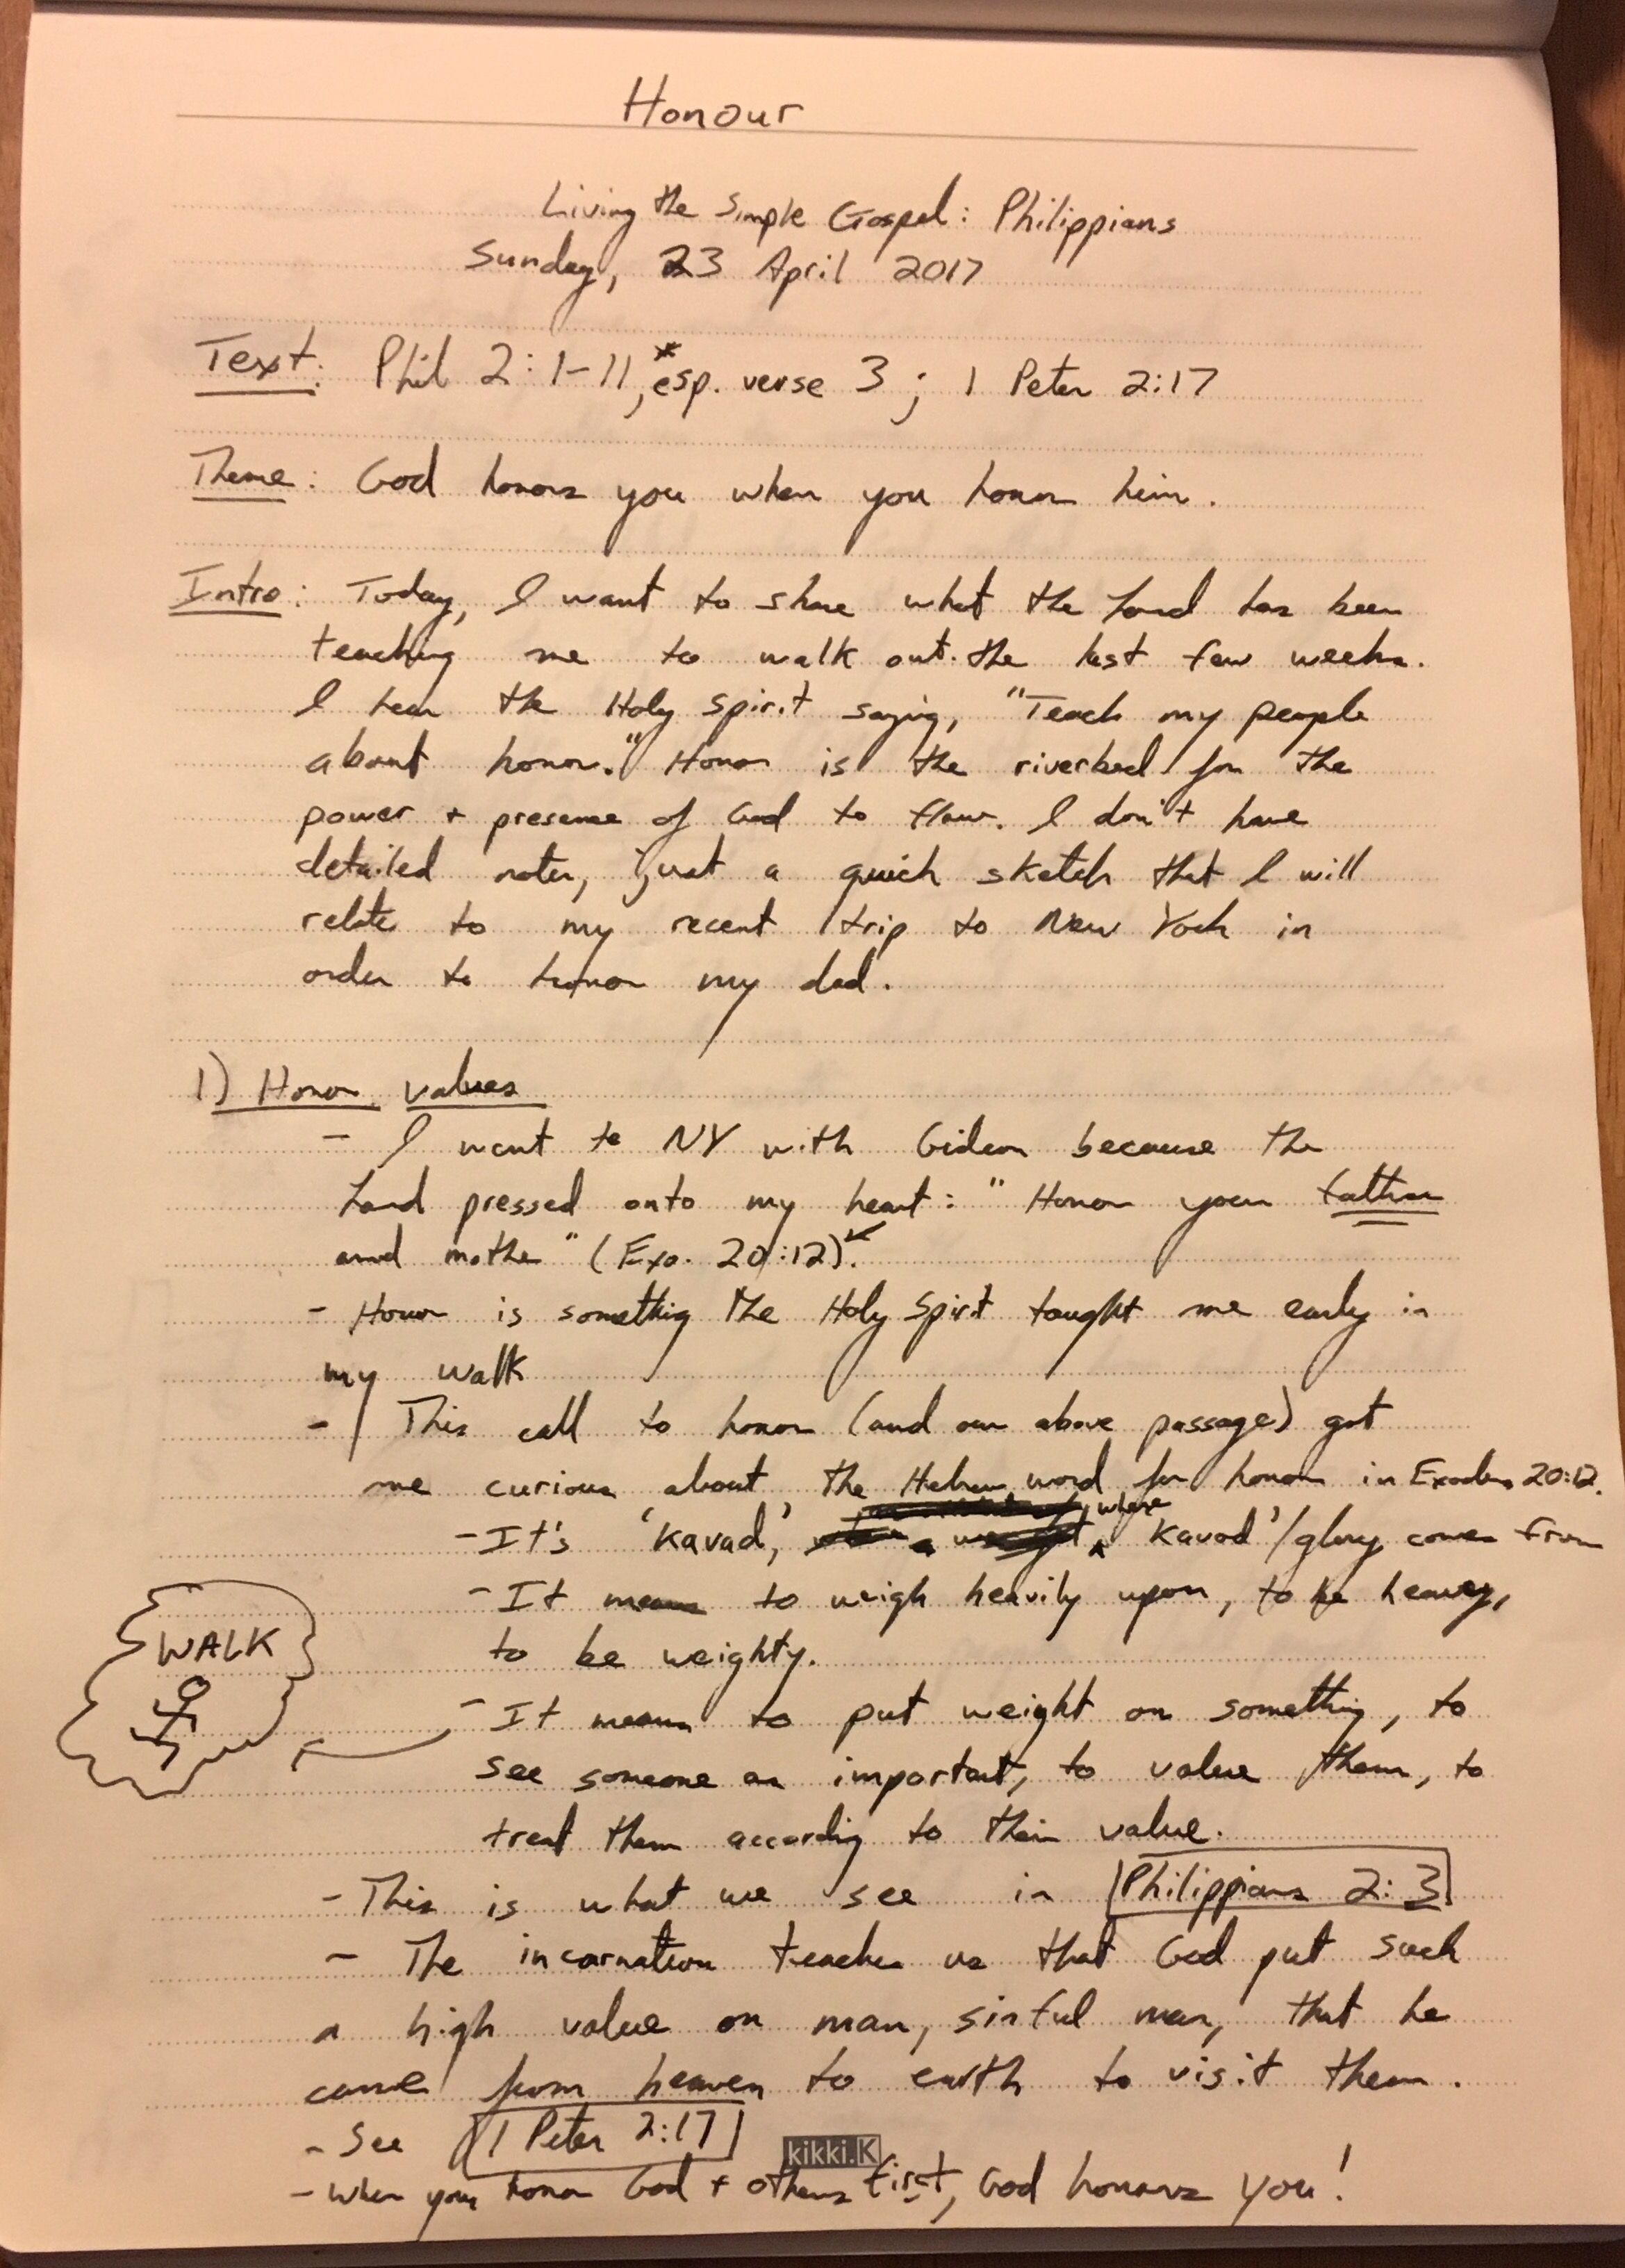 Honour
Living the Simple Gospel: Philippians
Sunday, 23 April 2017
Text: Phil 2:1-11,* esp. verse 3; 1 Peter 2:17
Theme: God honors you when you honor him.
Intro: Today, I want to share what the Lord has been
teaching me to walk out the last few weeks.
I hear the Holy Spirit saying, "Teach my people
about honor." Honor is the riverbed for the
power + presence of God to flow. I don't have
detailed notes, just a quick sketch that I will
relate to my recent trip to New York in
order to honor my dad.
1) Honor values
- I went to NY with Gideon because the
Lord pressed onto my heart: "Honor your father
and mothe" (Exo. 20:12).
- Honor is something the Holy Spirit taught me early in
my walk
- This call to honor (and our above passage) got
me curious about the Hebrew word for honor in Exodus 20:12.
- It's 'kavad,' where kavod'/glory comes from
- It means to weigh heavily upon, to be heavy,
to be weighty.
WALK
- It means to put weight on something, to
see someone as important, to value them, to
treat them according to their value.
- This is what we see in Philippians 2:3
- The incarnation teaches us that God put such
a high value on man, sinful man, that he
came from heaven to earth to visit them.
- See 1 Peter 2:17
kikki.K
- When you honor God + others first, God honors you!